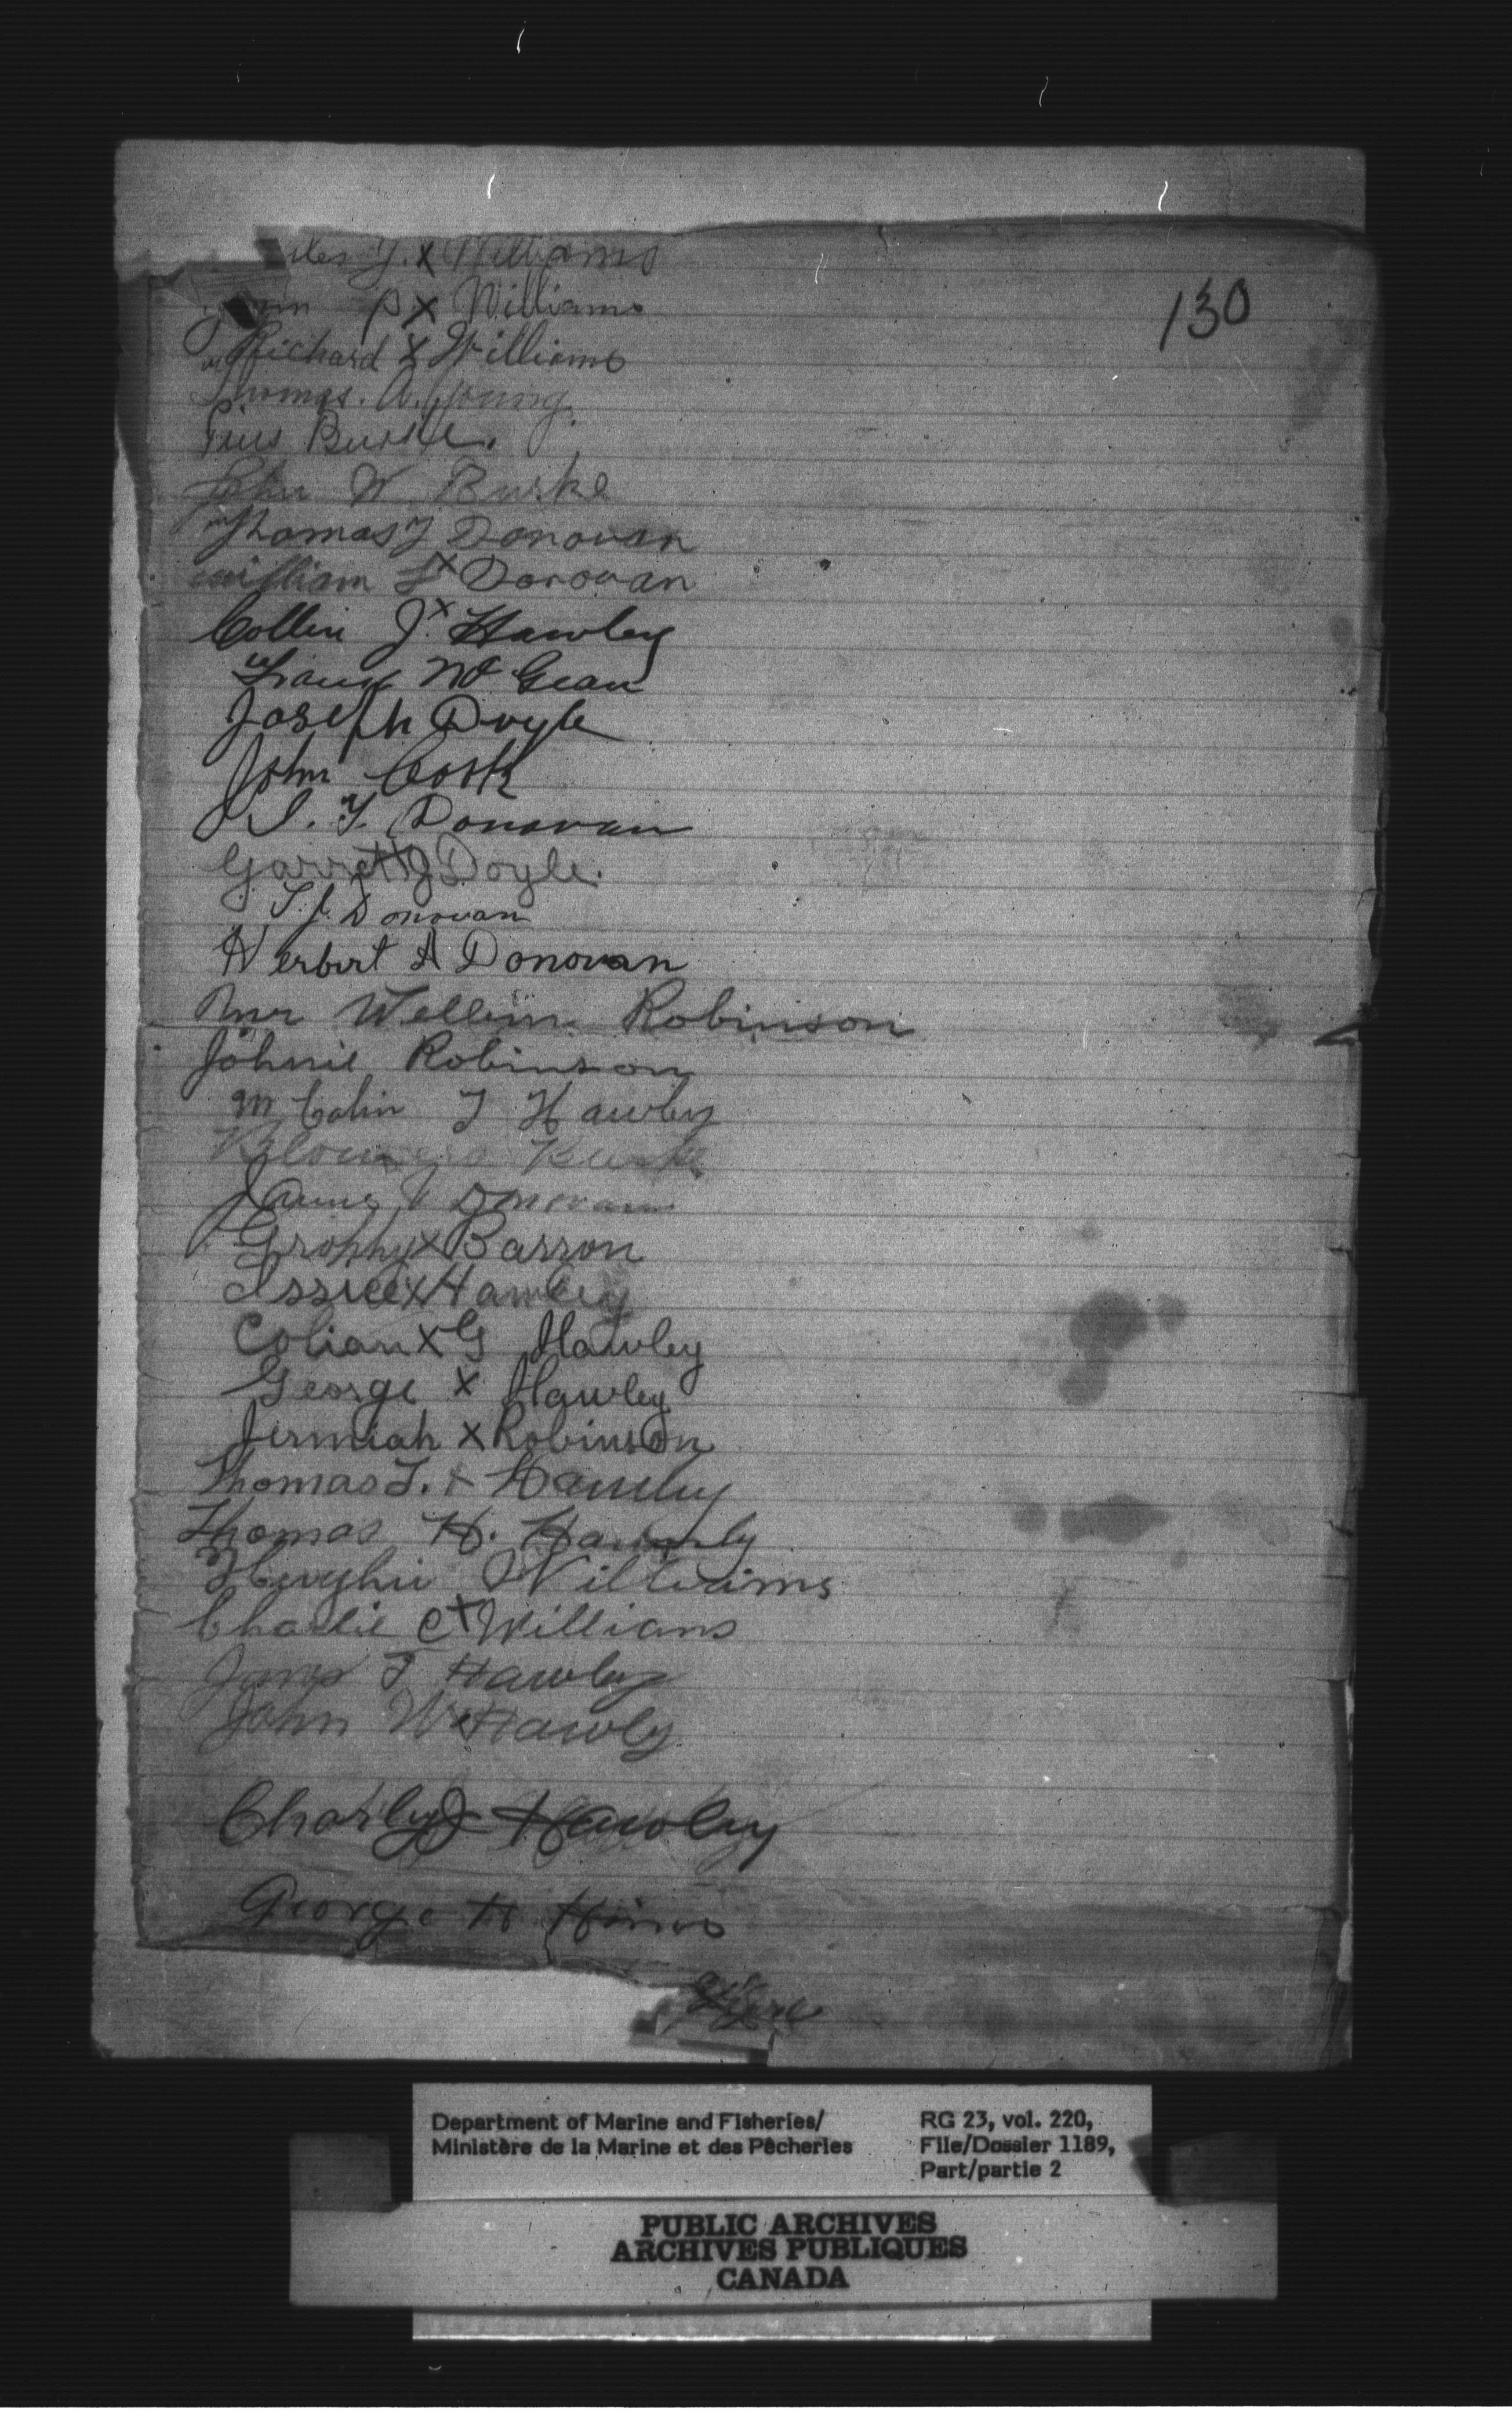 J. x Williams
130
P x Williams
Richard x Williams
Thomas. A. Young.
Pius Burke.
John W Burke
Thomas J Donovan
William x Donovan
Collin J. x Hawley
Mc Gean
Joseph Doyle
John Cook
J. Donovan
Garrett J Doyle.
T. J. Donovan
Herbert A Donovan
Mr Robinson
Johnie Robinson
Mr Colin J Hawley
Burke
James Donovan
x Barron
x Hawley
Colian x G Hawley
George x Hawley
Jermiah x Robinson
Thomas J. x Hawley
Thomas H. Hawley
Hughie Williams
Charlie C x Willians
James T Hawley
John W x Hawley
Charly J Hawley
George H
Department of Marine and Fisheries/
Ministère de la Marine et des Pêcheries
RG 23, vol. 220,
File/Dossier 1189,
Part/partie 2
PUBLIC ARCHIVES
ARCHIVES PUBLIQUES
CANADA